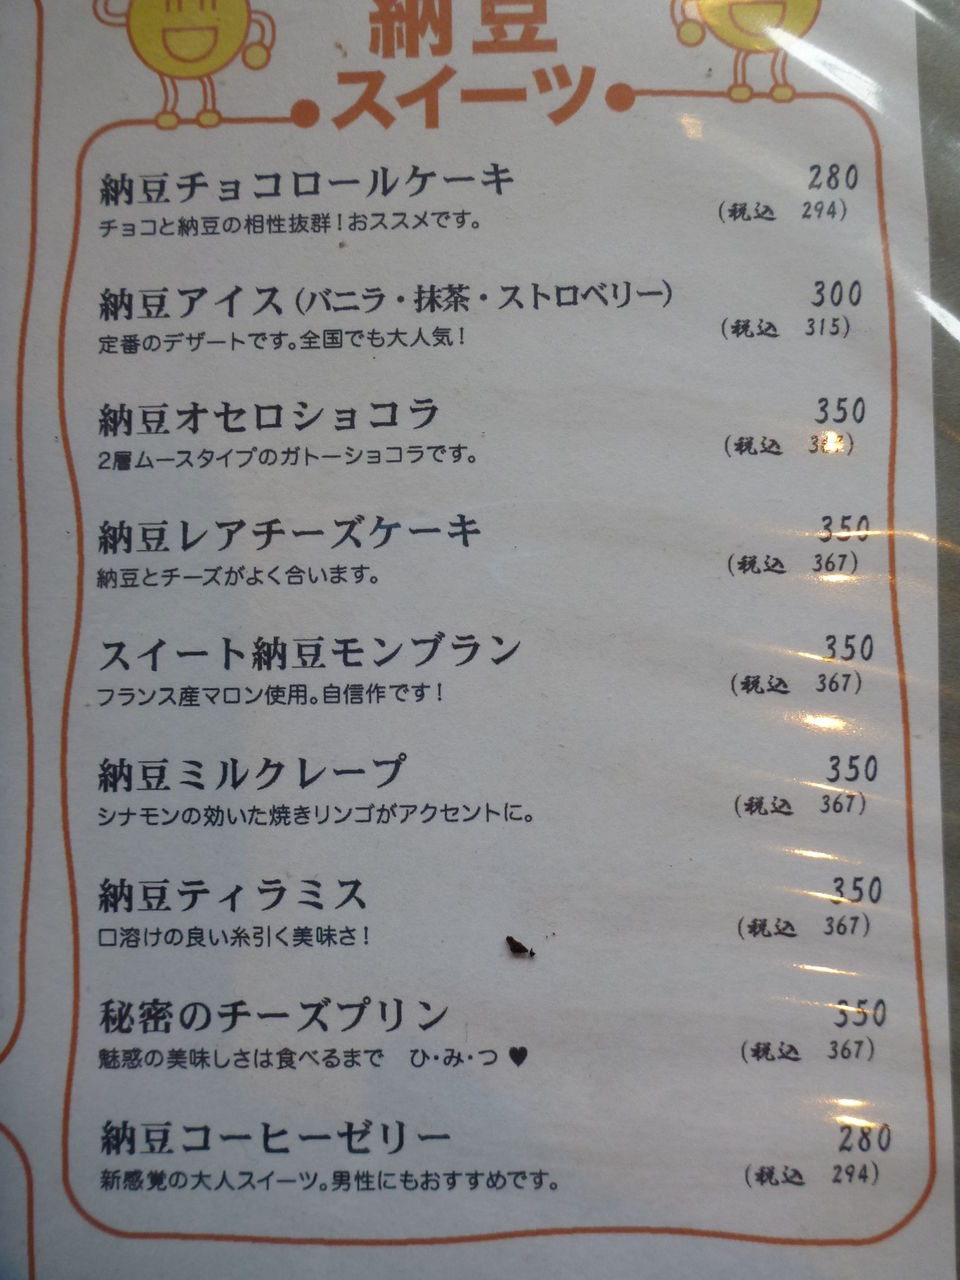 納豆
スイーツ
納豆チョコロールケーキ 280
チョコと納豆の相性抜群!おススメです。 (税込 294)
納豆アイス(バニラ・抹茶・ストロベリー) 300
定番のデザートです。全国でも大人気! (税込 315)
納豆オセロショコラ 350
2層ムースタイプのガトーショコラです。 (税込
納豆レアチーズケーキ 350
納豆とチーズがよく合います。 (税込 367)
スイート納豆モンブラン 350
フランス産マロン使用。自信作です! (税込 367)
納豆ミルクレープ 350
シナモンの効いた焼きリンゴがアクセントに。 (税込 367)
納豆ティラミス 350
口溶けの良い糸引く美味さ! (税込 367)
秘密のチーズプリン 350
魅惑の美味しさは食べるまで ひ・み・つ ♥ (税込 367)
納豆コーヒーゼリー 280
新感覚の大人スイーツ。男性にもおすすめです。 (税込 294)